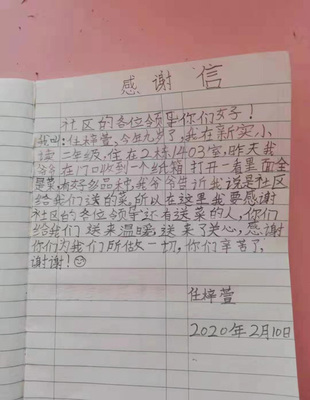 感谢信
社区的各位领导你们好!
我叫:任梓萱,今年九岁了,我在新实小
读二年级,住在2栋1403室,昨天我
爷爷在门口收到一个纸箱打开一看里面全
是菜有好多品种,我爷爷告诉我说是社区
给我们送的菜,所以在这里我要感谢
社区的各位领导还有送菜的人,你们
给我们送来温暖,送来了关心,感谢
你们为我们所做一切,你们辛苦了,
谢谢!☺
任梓萱
2020年2月10日